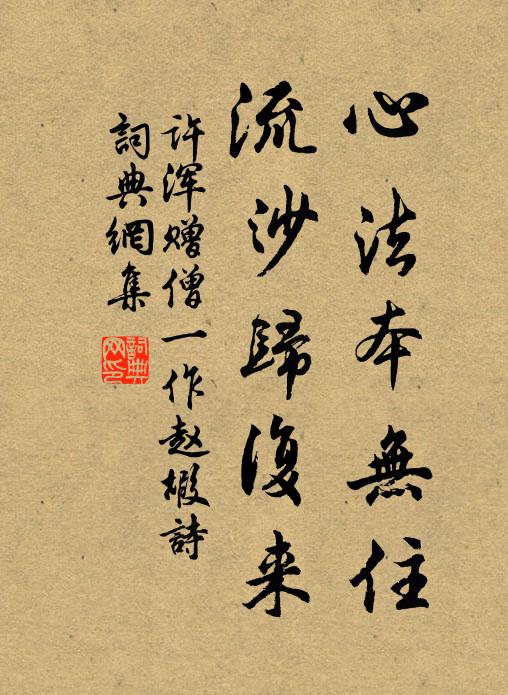 心法本無住
流沙歸復来
许渾贈僧一作赵嘏詩
詞典網集
詞典
网印